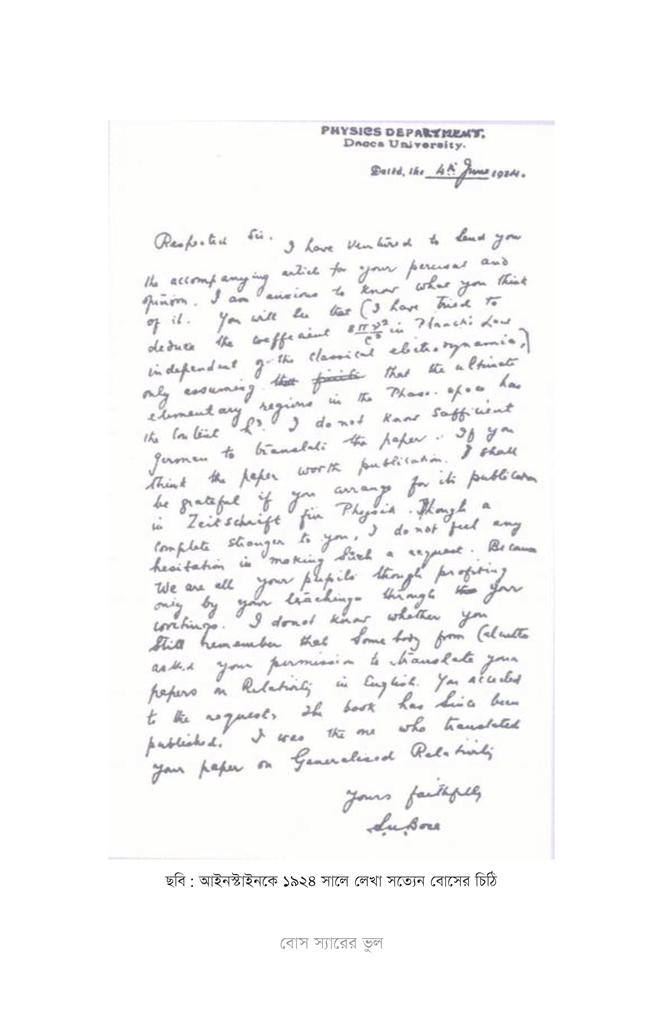 PHYSICS DEPARTMENT,
Dacca University.
Dated, the 4th June 1924.
Respected Sir, I have ventured to send you
the accompanying article for your perusal and
opinion. I am anxious to know what you think
of it. You will see that (I have tried to
deduce the coefficient 8πν²/c³ in Planck's Law
independent of the classical electrodynamics,)
only assuming that the ultimate
elementary regions in the Phase-space has
the content h³. I do not know sufficient
German to translate the paper. If you
think the paper worth publication. I shall
be grateful if you arrange for its publication
in Zeitschrift für Physik. Though a
complete stranger to you, I do not feel any
hesitation in making such a request. Because
We are all your pupils though profiting
only by your teachings through your
writings. I donot know whether you
still remember that somebody from Calcutta
asked your permission to translate your
papers on Relativity in English. You acceded
to the request. The book has since been
published. I was the one who translated
your paper on Generalised Relativity
Yours faithfully
S.N.Bose
ছবি : আইনস্টাইনকে ১৯২৪ সালে লেখা সত্যেন বোসের চিঠি
বোস স্যারের ভুল